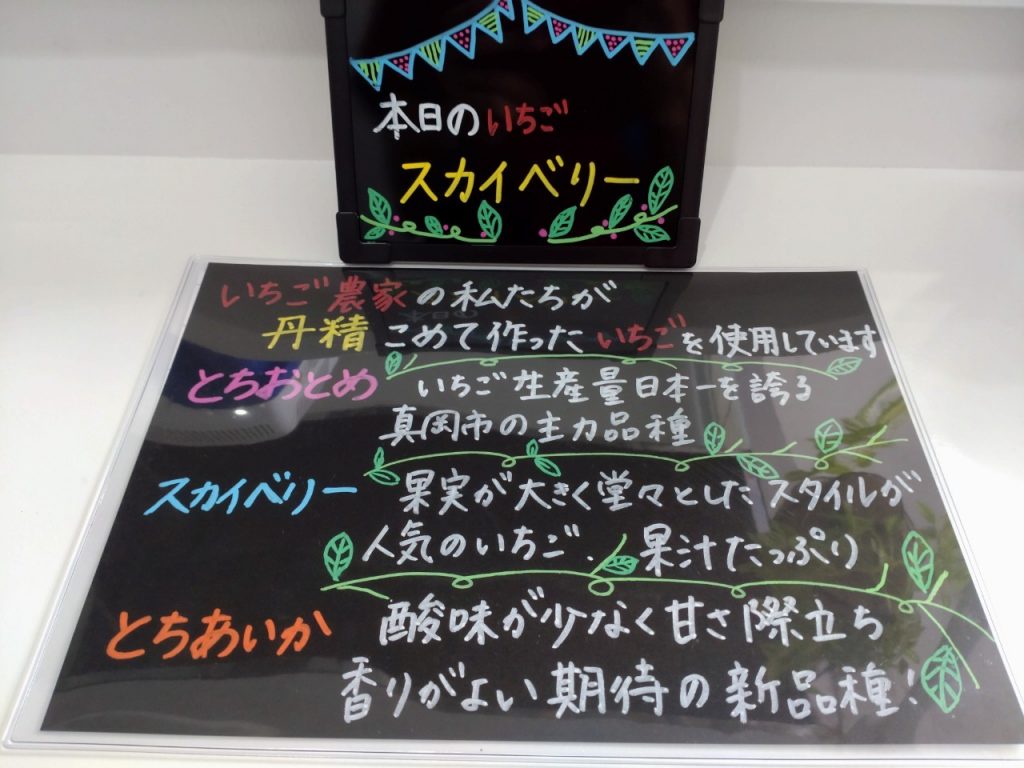 本日のいちご
スカイベリー
いちご農家の私たちが
丹精こめて作ったいちごを使用しています
とちおとめ いちご生産量日本一を誇る
真岡市の主力品種
スカイベリー 果実が大きく堂々としたスタイルが
人気のいちご、果汁たっぷり
とちあいか 酸味が少なく甘さ際立ち
香りがよい期待の新品種!